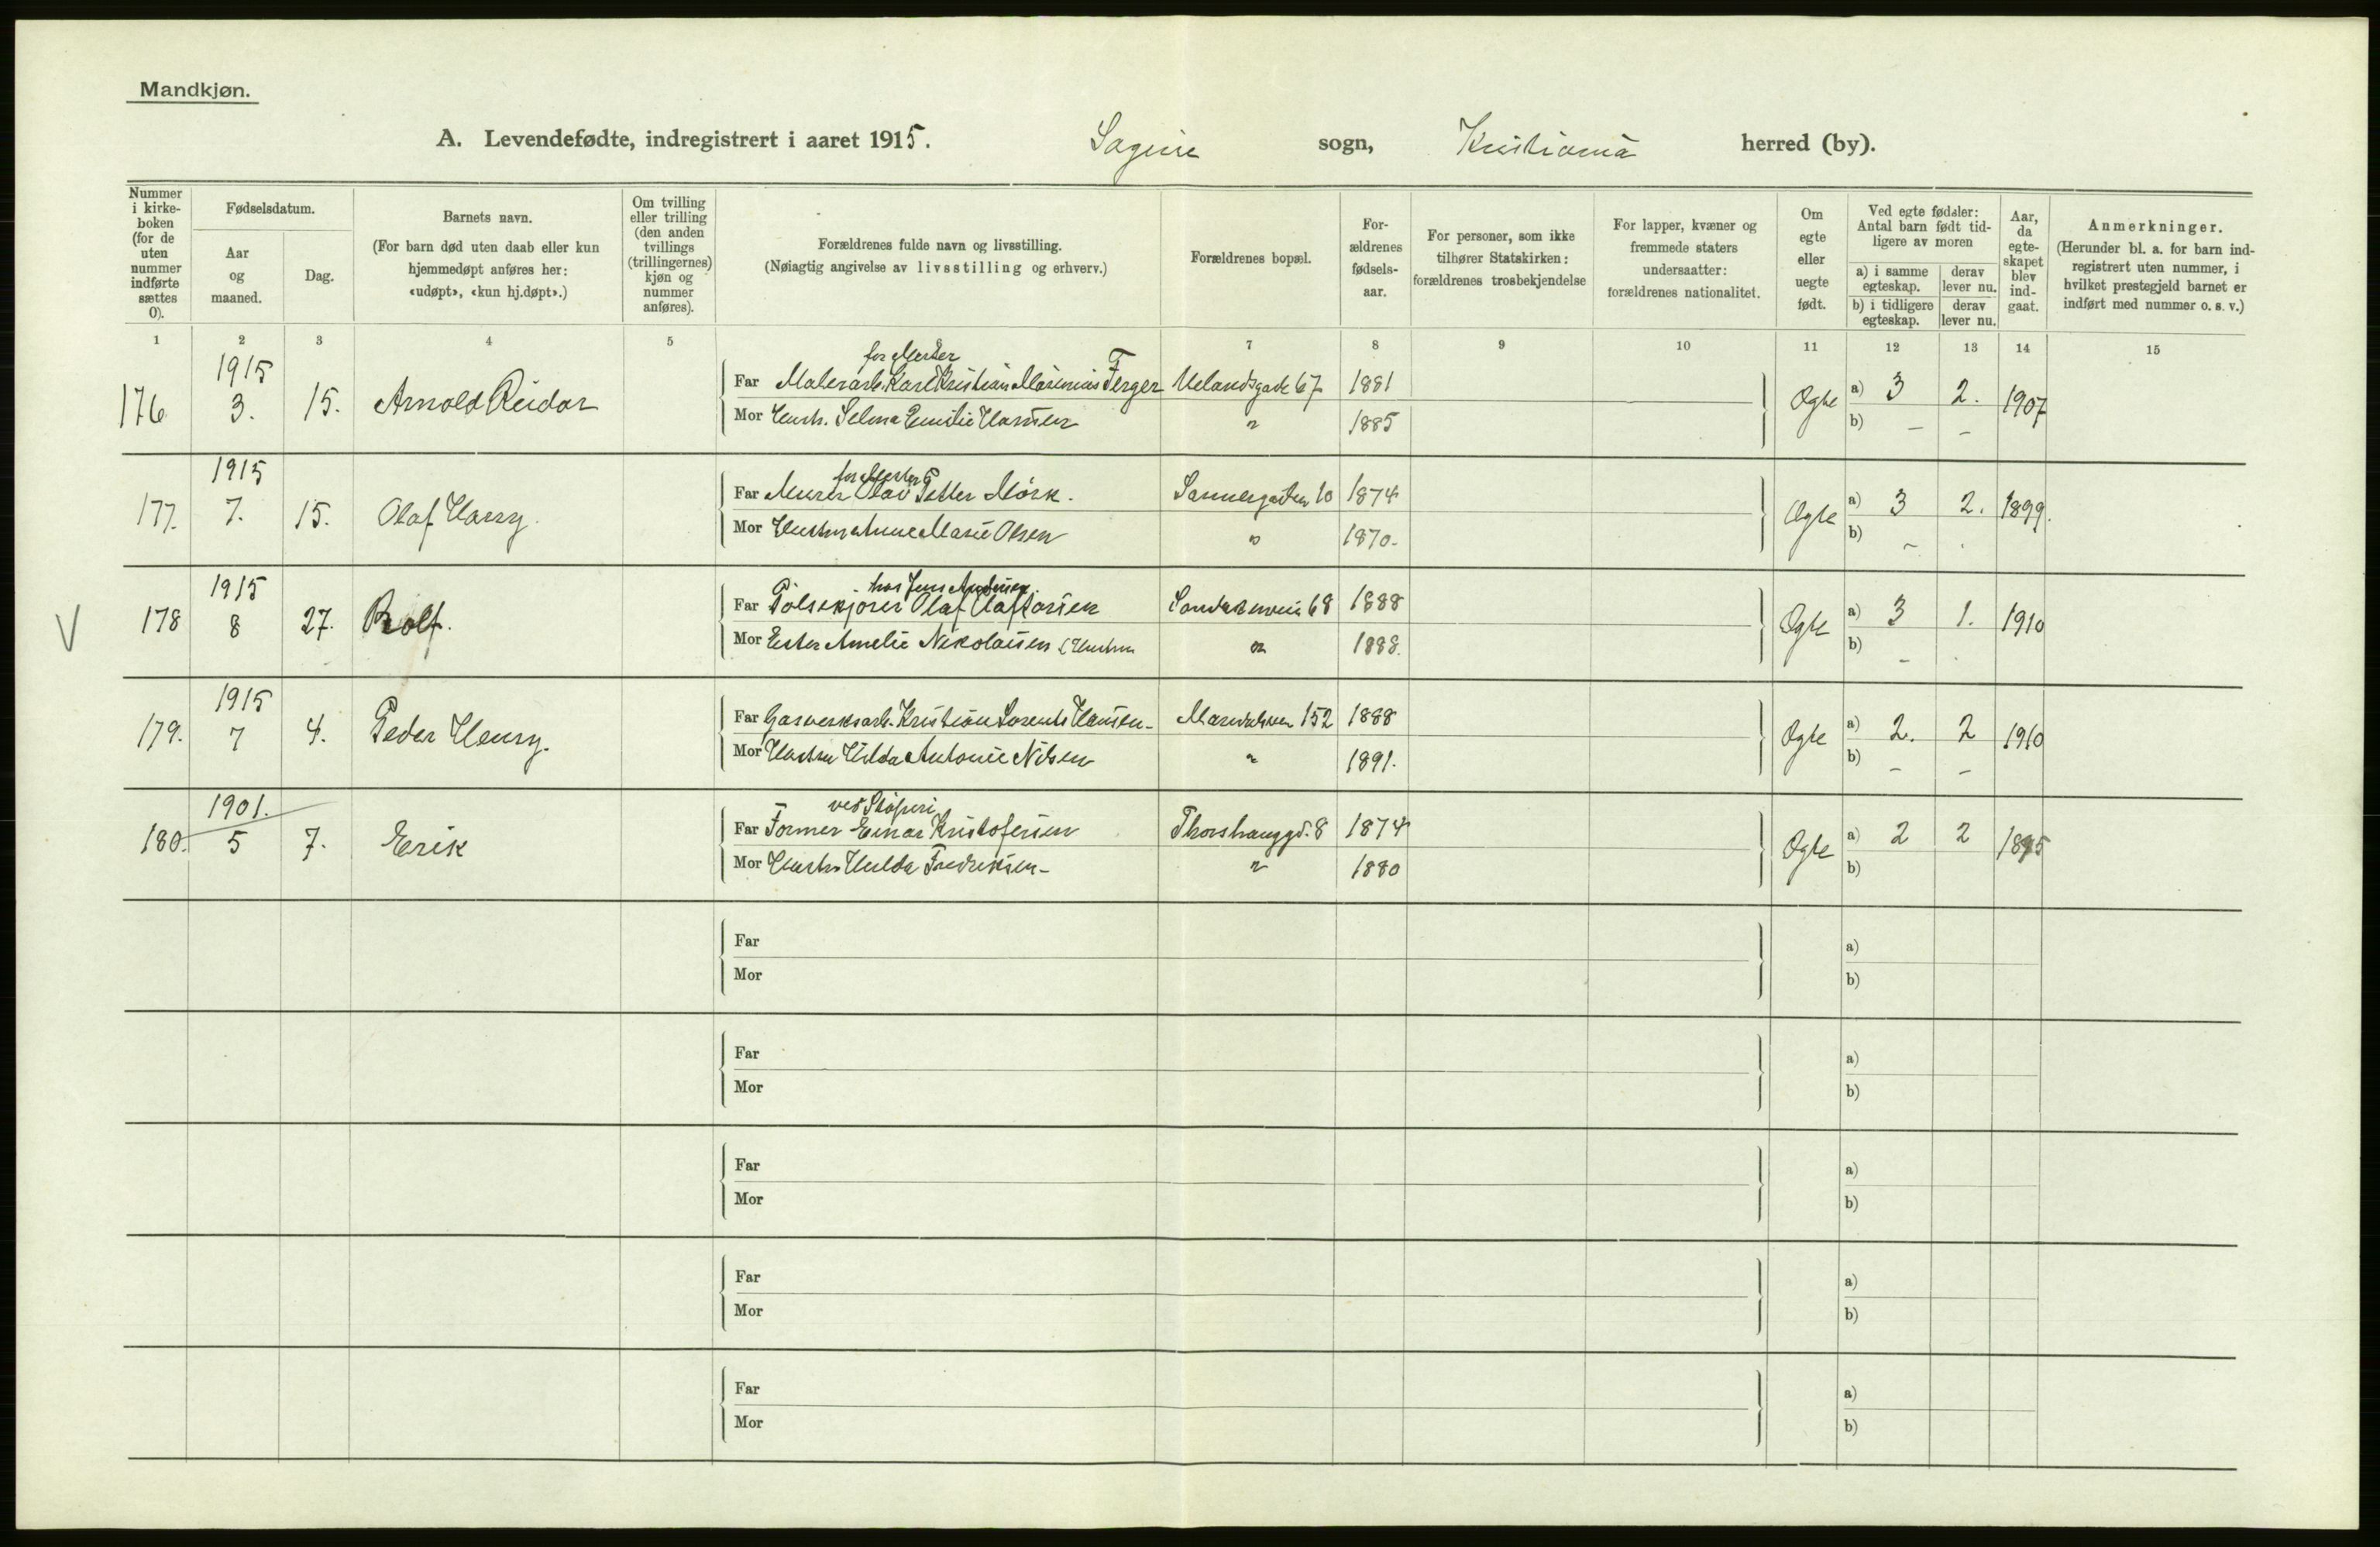 Mandkjøn.
A. Levendefødte, indregistrert i aaret 1915. Sagene sogn, Kristiania herred (by).
Nummer i kirke-boken (for de uten nummer indførte sættes 0).
Fødselsdatum.
Aar og maaned.
Dag.
Barnets navn.
(For barn død uten daab eller kun hjemmedøpt anføres her: «udøpt», «kun hj.døpt».)
Om tvilling eller trilling (den anden tvillings (trillingernes) kjøn og nummer anføres).
Forældrenes fulde navn og livsstilling.
(Nøiagtig angivelse av livsstilling og erhverv.)
Forældrenes bopæl.
For-ældrenes fødsels-aar.
For personer, som ikke tilhører Statskirken: forældrenes trosbekjendelse
For lapper, kvæner og fremmede staters undersaatter: forældrenes nationalitet.
Om egte eller uegte født.
Ved egte fødsler: Antal barn født tid-ligere av moren
a) i samme egteskap.
derav lever nu.
b) i tidligere egteskap.
derav lever nu.
Aar, da egte-skapet blev ind-gaat.
Anmerkninger.
(Herunder bl. a. for barn ind-registrert uten nummer, i hvilket prestegjeld barnet er indført med nummer o. s. v.)
1 2 3 4 5 7 8 9 10 11 12 13 14 15
for Mester
176 1915 3. 15. Arnold Reidar Far Malerarb. Karl Kristian Marinius Ferger Uelandsgade 67 1881 Ægte a) 3 2. 1907
Mor Hustr. Selma Emilie Hansen " 1885 b) – –
for Mester
177. 1915 7. 15. Olaf Harry. Far Murer Olav Petter Mørk. Sannergaten 10 1874 Ægte a) 3 2. 1899.
Mor Hustru Anne Marie Olsen " 1870. b) –
hos Jens Andersen
V 178 1915 8 27. Rolf. Far Pølsekjører Olaf Olaf Larsen 68 1888 Ægte a) 3 1. 1910
Mor Ester Amelie Nikolaisen (Hustru " 1888. b) –
179. 1915 7 4. Peder Henry. Far Gasverksarb. Kristian Lorents Hansen - 152 1888 Ægte a) 2. 2 1910
Mor Hustru Hilda Antonie Nilsen " 1891. b) – –
ved Støperi
180. 1901. 5 7. Erik Far Former Einar Kristofersen Thorshauggd. 8 1874 Ægte a) 2 2 1895
Mor Hustru Hulda Fredriksen - " 1880 b)
Far a)
Mor b)
Far a)
Mor b)
Far a)
Mor b)
Far a)
Mor b)
Far a)
Mor b)